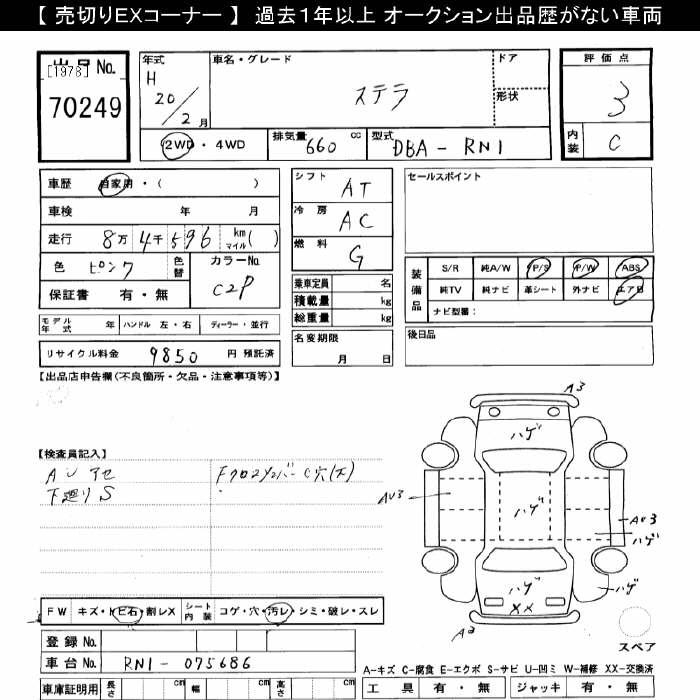 【 売切りEXコーナー 】 過去１年以上 オークション出品歴がない車両
出品No. [1978]
70249
年式 H 20/2月
車名・グレード ステラ
ドア
形状
評価点 3
内装 C
2WD・4WD
排気量 660 cc
型式 DBA-RN1
車歴 自家用・( )
車検 年 月
走行 8万4千596 km マイル( )
色 ピンク 色替
カラーNo. C2P
保証書 有・無
モデル年式 年 ハンドル 左・右 ディーラー・並行
リサイクル料金 9850 円 預託済
シフト AT
冷房 AC
燃料 G
乗車定員 名
積載量 kg
総重量 kg
名変期限 月 日
セールスポイント
装備品 S/R 純A/W P/S P/W ABS
純TV 純ナビ 革シート 外ナビ エアB
ナビ型番:
後日品
【出品店申告欄(不良箇所・欠品・注意事項等)】
【検査員記入】
AU アセ
下廻りS
FクロスメンバーC穴(大)
A3
ハゲ
AU3
ハゲ
AU3
ハゲ
ハゲ
ハゲ
XX
A2
スペア
FW キズ・トビ石・割レX シート内装 コゲ・穴・汚レ・シミ・破レ・スレ
登録No.
車台No. RN1-075686
車庫証明用 長さ cm 幅 cm 高さ cm
A-キズ C-腐食 E-エクボ S-サビ U-凹ミ W-補修 XX-交換済
工具 有・無 ジャッキ 有・無